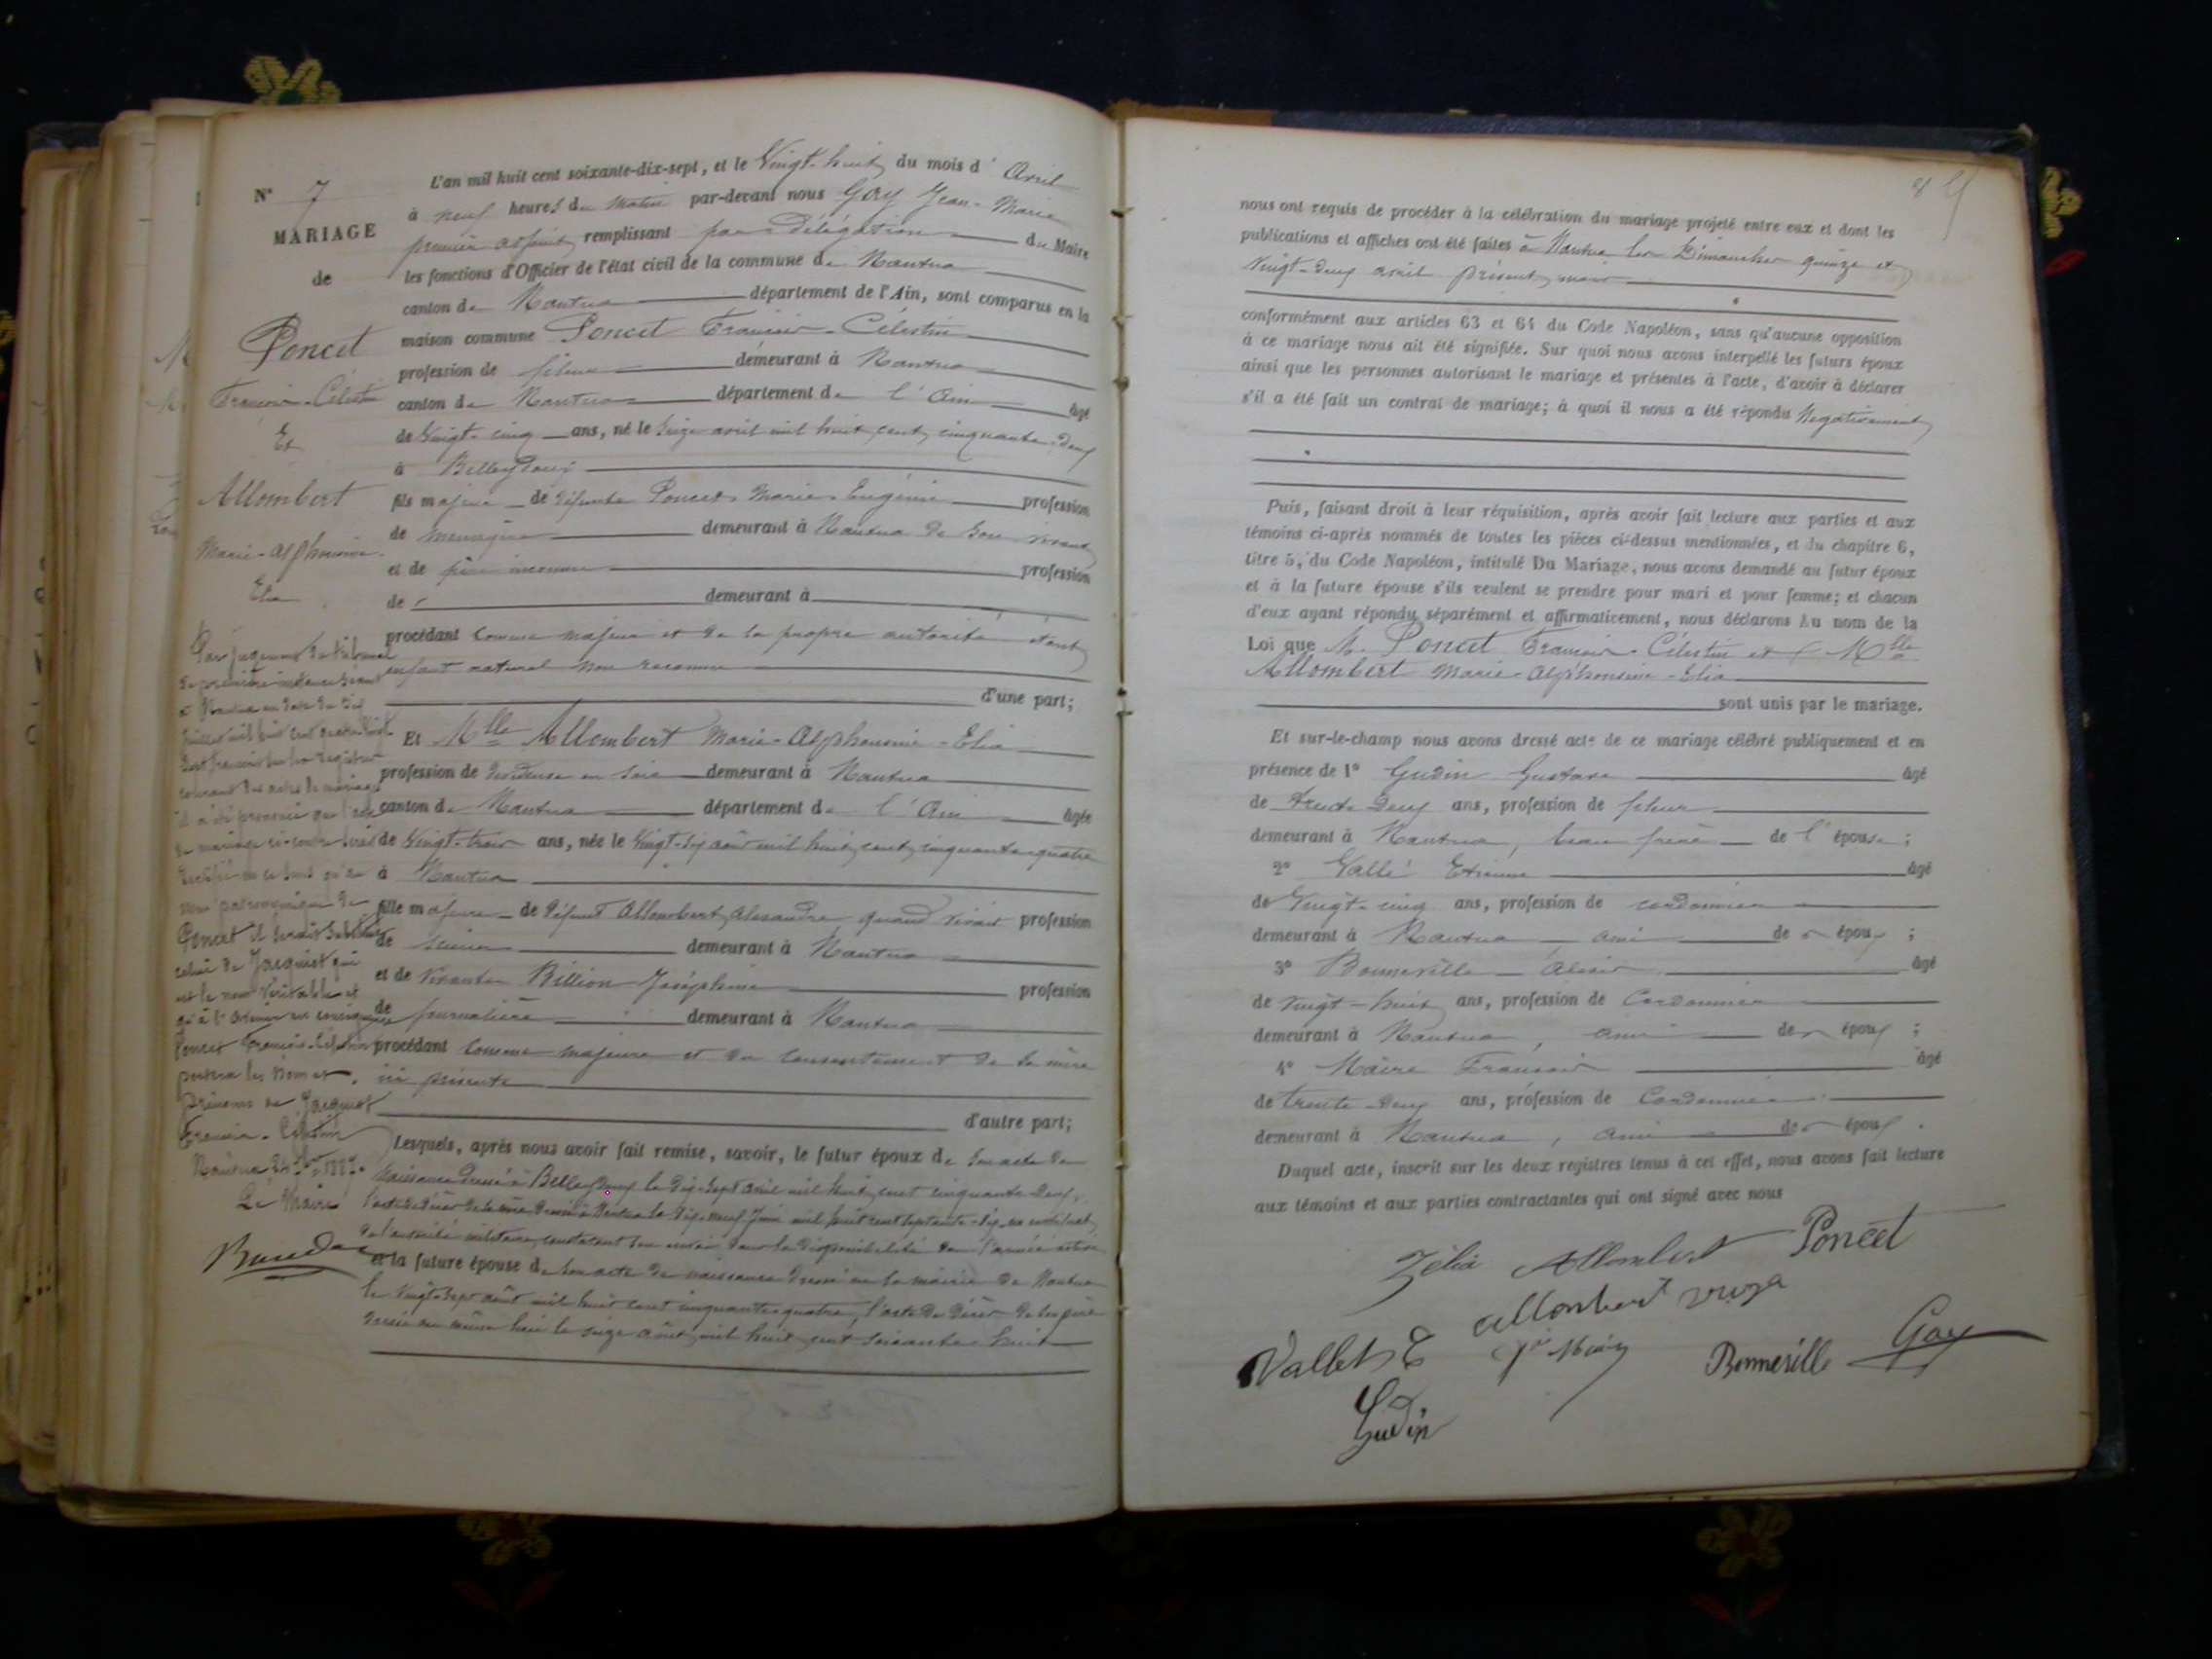 N° 7
MARIAGE
de
Poncet
François-Célestin
Et
Allombert
Marie-Alphonsine
Elia
Par jugement du tribunal
de première instance séant
à Nantua en date du dix
juillet mil huit cent quatre-vingt
transcrit sur les registres
courant des actes de mariage
il a été prononcé que l'acte
de mariage ci-contre serait
rectifié en ce sens qu'au
nom patronymique de
Poncet il serait substitué
celui de Jacquiot qui
est le nom véritable et
qu'à l'avenir
Poncet François-Célestin
portera les nom et
prénoms de Jacquiot
François-Célestin
Nantua
Le Maire
L'an mil huit cent soixante-dix-sept, et le Vingt-huit du mois d'Avril
à neuf heures du matin par-devant nous Gay Jean-Marie
premier adjoint remplissant par délégation du Maire
les fonctions d'Officier de l'état civil de la commune de Nantua
canton de Nantua département de l'Ain, sont comparus en la
maison commune Poncet François-Célestin
profession de fileur demeurant à Nantua
canton de Nantua département de l'Ain âgé
de Vingt-cinq ans, né le seize avril mil huit cent cinquante-deux
à Belleydoux
fils majeur de défunte Poncet Marie-Eugénie profession
de ménagère demeurant à Nantua de son vivant
et de père inconnu profession
de demeurant à
procédant comme majeur et de sa propre autorité étant
enfant naturel non reconnu
d'une part;
Et Mlle Allombert Marie-Alphonsine-Elia
profession de dévideuse en soie demeurant à Nantua
canton de Nantua département de l'Ain âgée
de Vingt-trois ans, née le Vingt-six août mil huit cent cinquante-quatre
à Nantua
fille majeure de défunt Allombert Alexandre quand vivait profession
de scieur demeurant à Nantua
et de vivante Billion Joséphine profession
de journalière demeurant à Nantua
procédant comme majeure et du consentement de sa mère
ici présente
d'autre part;
Lesquels, après nous avoir fait remise, savoir, le futur époux de son acte de
naissance dressé à Belleydoux le dix-sept avril mil huit cent cinquante deux,
l'acte de décès de sa mère dressé à Nantua le dix-neuf juin mil huit cent septante-six, un certificat
de l'autorité militaire constatant son envoi dans la disponibilité de l'armée active
et la future épouse de son acte de naissance dressé en la mairie de Nantua
le vingt-sept août mil huit cent cinquante-quatre, l'acte de décès de son père
dressé au même lieu le seize août mil huit cent soixante-huit
nous ont requis de procéder à la célébration du mariage projeté entre eux et dont les
publications et affiches ont été faites à Nantua les Dimanches quinze et
vingt-deux avril présent mois
conformément aux articles 63 et 64 du Code Napoléon, sans qu'aucune opposition
à ce mariage nous ait été signifiée. Sur quoi nous avons interpellé les futurs époux
ainsi que les personnes autorisant le mariage et présentes à l'acte, d'avoir à déclarer
s'il a été fait un contrat de mariage; à quoi il nous a été répondu Négativement
Puis, faisant droit à leur réquisition, après avoir fait lecture aux parties et aux
témoins ci-après nommés de toutes les pièces ci-dessus mentionnées, et du chapitre 6,
titre 5, du Code Napoléon, intitulé Du Mariage, nous avons demandé au futur époux
et à la future épouse s'ils veulent se prendre pour mari et pour femme; et chacun
d'eux ayant répondu séparément et affirmativement, nous déclarons Au nom de la
Loi que Mr Poncet François-Célestin et Mlle
Allombert Marie-Alphonsine-Elia
sont unis par le mariage.
Et sur-le-champ nous avons dressé acte de ce mariage célébré publiquement et en
présence de 1° Gudin Gustave âgé
de trente deux ans, profession de fileur
demeurant à Nantua, beau frère de l'épouse;
2° Vallé Etienne âgé
de Vingt-cinq ans, profession de cordonnier
demeurant à Nantua ami de époux;
3° Bonneville Alexis âgé
de vingt-huit ans, profession de Cordonnier
demeurant à Nantua, ami de époux;
4° Maire François âgé
de trente-deux ans, profession de Cordonnier
demeurant à Nantua, ami de époux.
Duquel acte, inscrit sur les deux registres tenus à cet effet, nous avons fait lecture
aux témoins et aux parties contractantes qui ont signé avec nous
Zélia Allombert Poncet
allombert
Vallet E Bonneville Gay
Gudin